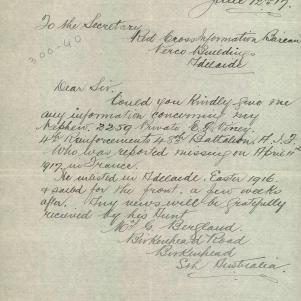 June 12th 17.
To the Secretary
Red Cross Information Bureau
Verco Buildings
Adelaide
300-40
Dear Sir.
Could you kindly give me
any information concerning my
Nephew. 2259 Private E. G. Viney.
4th Reinforcements 48th Battalion A.I.F.
Who was reported missing on April 11th
1917 in France.
He enlisted in Adelaide. Easter 1916.
& sailed for the front. a few weeks
after. Any news will be gratefully
recieved by his Aunt
Mrs C. Bergland
Birkenhead Road
Birkenhead
Sth Australia.